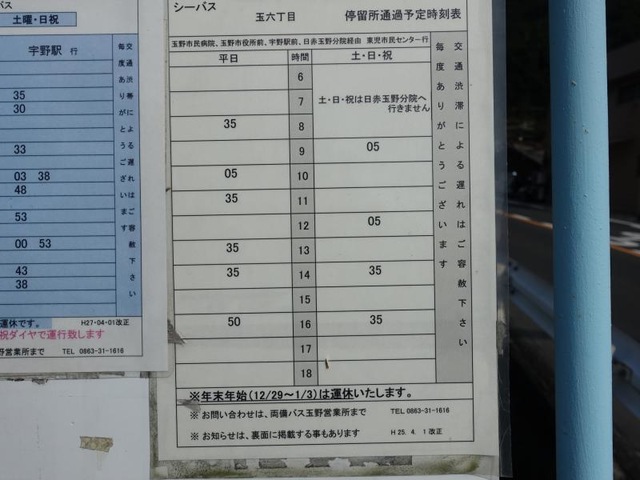 バス
土曜・日祝
宇野駅 行
35
30
33
03 38
48
53
00 53
43
38
毎度ありがとうございます
交通渋滞による遅れはご容赦下さい
運休です。 H27・04・01改正
祝ダイヤで運行致します
野営業所まで TEL 0863-31-1616
シーバス
玉六丁目 停留所通過予定時刻表
玉野市民病院、玉野市役所前、宇野駅前、日赤玉野分院経由 東児市民センター行
平日 時間 土・日・祝
6
7 土・日・祝は日赤玉野分院へ
行きません
35 8
9 05
05 10
35 11
12 05
35 13
35 14 35
15
50 16 35
17
18
交通渋滞による遅れはご容赦下さい
毎度ありがとうございます
※年末年始(12/29～1/3)は運休いたします。
※ お問い合わせは、両備バス玉野営業所まで TEL 0863-31-1616
※ お知らせは、裏面に掲載する事もあります H 25. 4. 1 改正